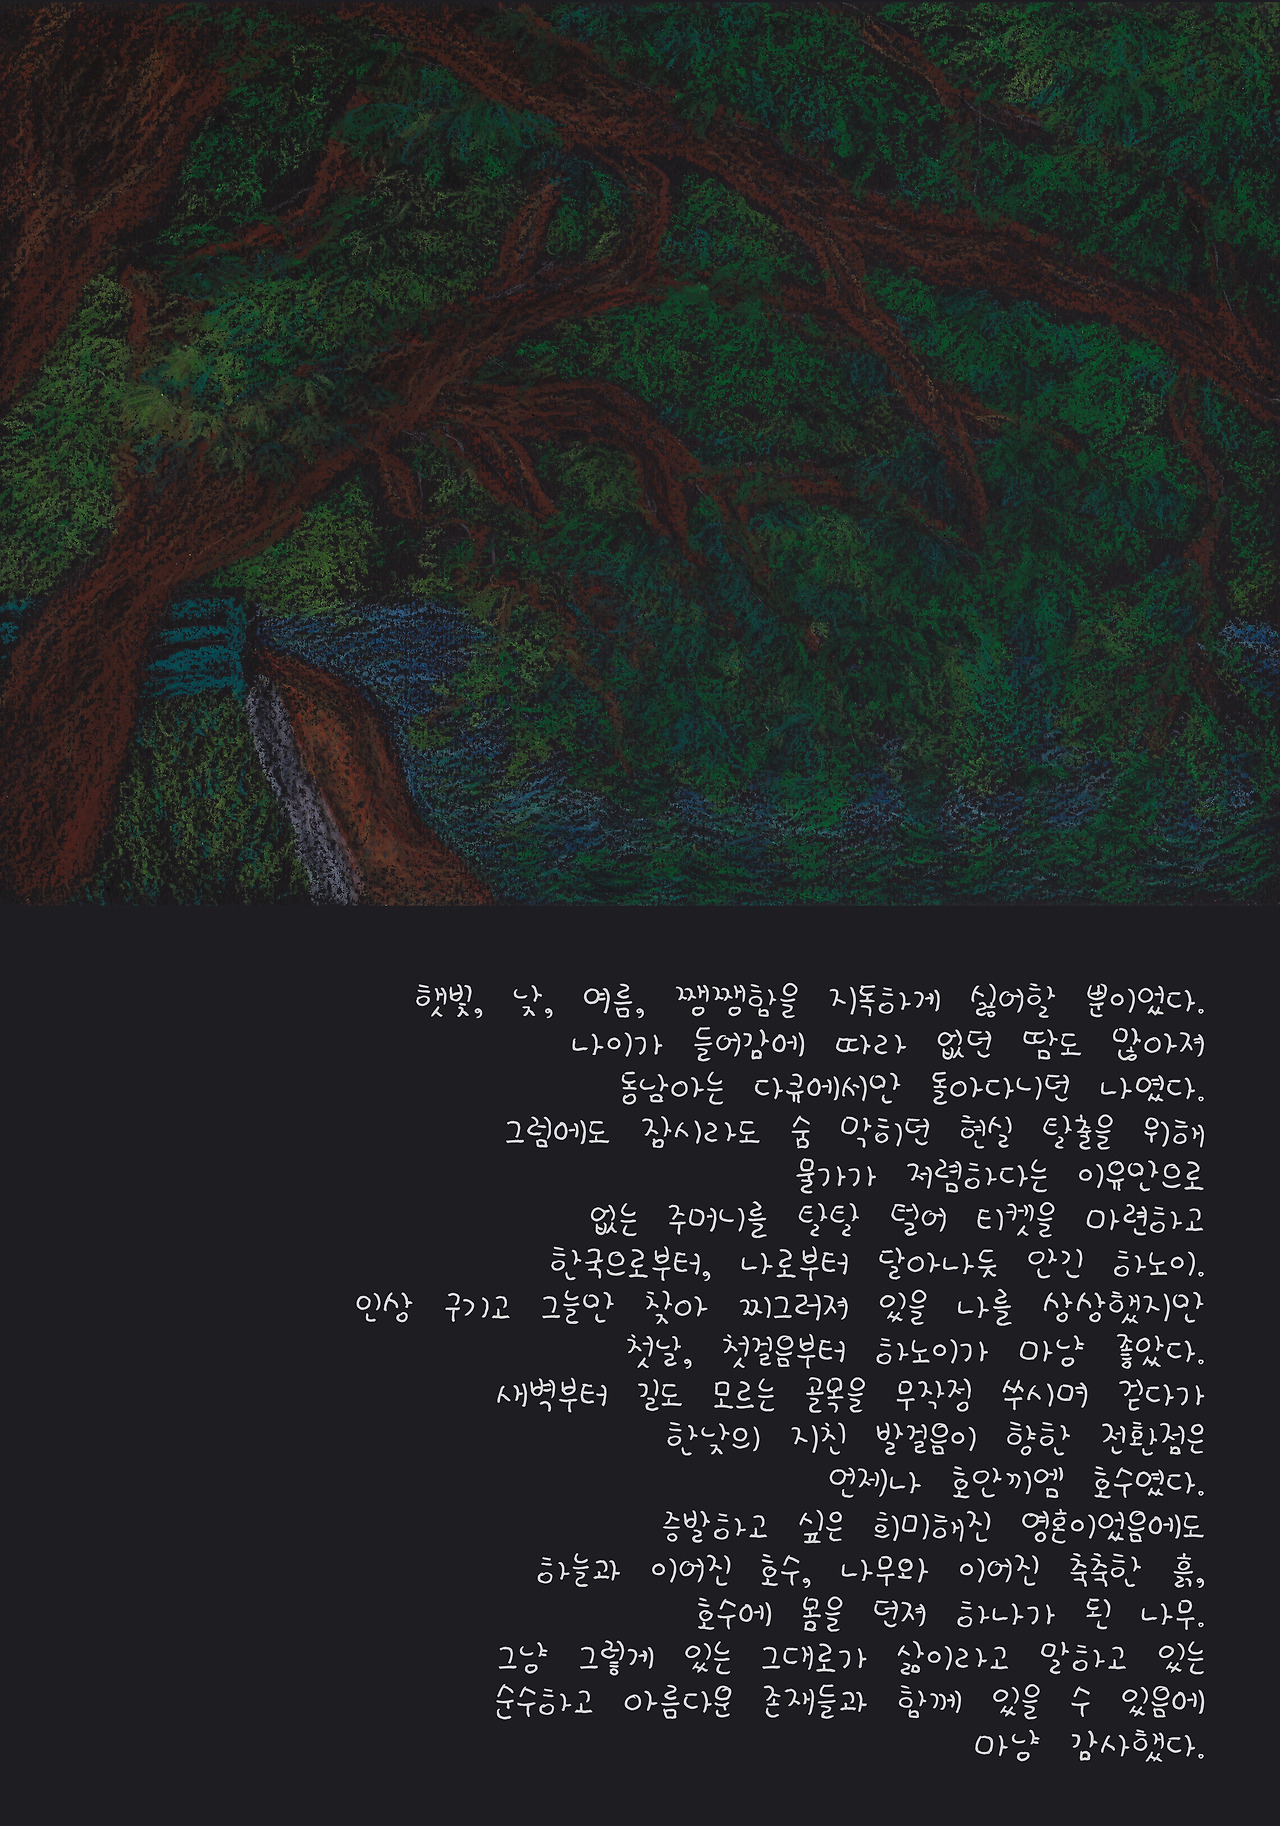 햇빛, 낮, 여름, 쨍쨍함을 지독하게 싫어할 뿐이었다.
나이가 들어감에 따라 없던 땀도 많아져
동남아는 다큐에서만 돌아다니던 나였다.
그럼에도 잠시라도 숨 막히던 현실 탈출을 위해
물가가 저렴하다는 이유만으로
없는 주머니를 탈탈 털어 티켓을 마련하고
한국으로부터, 나로부터 달아나듯 안긴 하노이.
인상 구기고 그늘만 찾아 찌그러져 있을 나를 상상했지만
첫날, 첫걸음부터 하노이가 마냥 좋았다.
새벽부터 길도 모르는 골목을 무작정 쑤시며 걷다가
한낮의 지친 발걸음이 향한 전환점은
언제나 호안끼엠 호수였다.
증발하고 싶은 희미해진 영혼이었음에도
하늘과 이어진 호수, 나무와 이어진 축축한 흙,
호수에 몸을 던져 하나가 된 나무.
그냥 그렇게 있는 그대로가 삶이라고 말하고 있는
순수하고 아름다운 존재들과 함께 있을 수 있음에
마냥 감사했다.